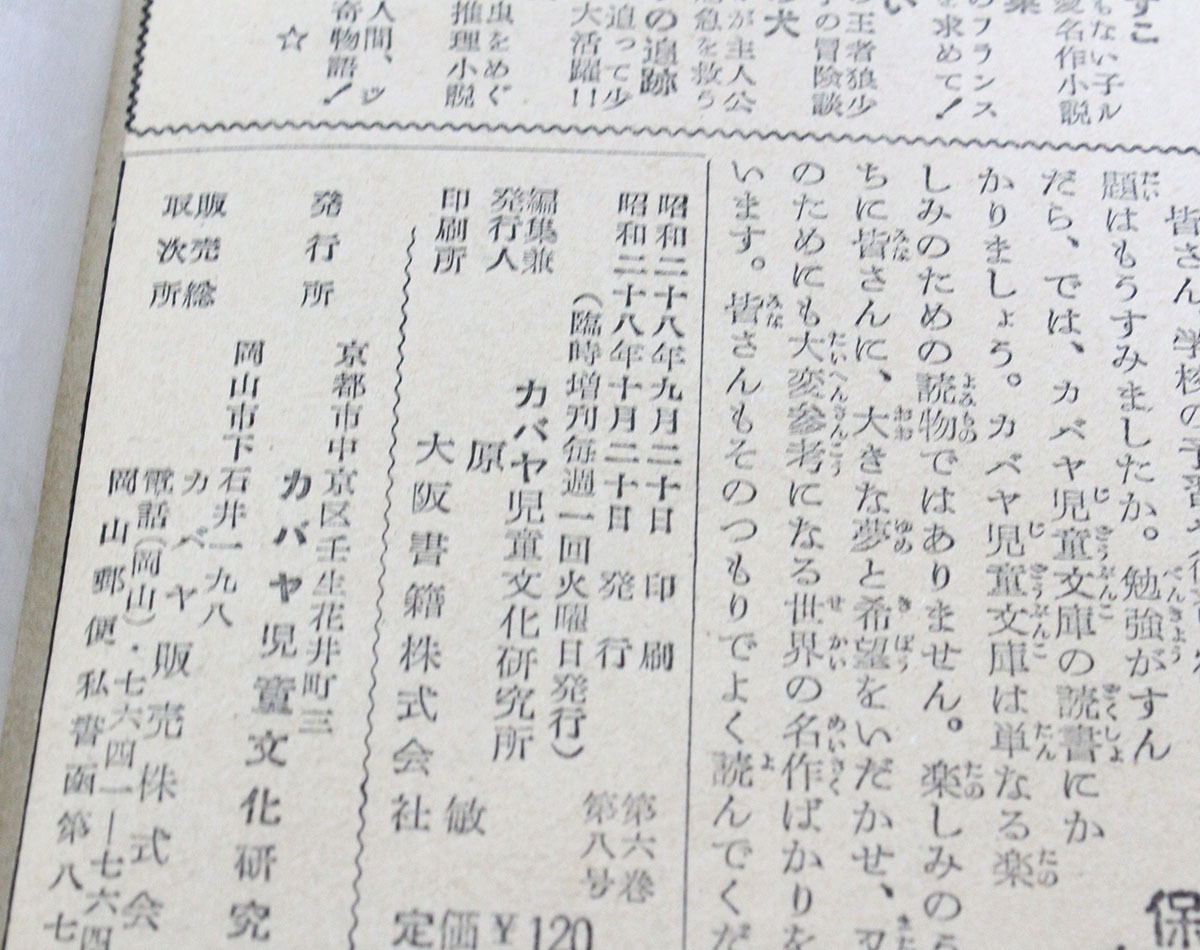 すこ
もない子ル
愛名作小説
集
のフランス
を求めて！
い
の王者狼少
の冒険談
の犬
が主人公
急を救う
の追跡
迫って少
大活躍!!
虫をめぐ
推理小説
人間、ッ
奇物語！
☆
皆さん、学校の予習や
題はもうすみましたか。勉強がすん
だら、では、カバヤ児童文庫の読書にか
かりましょう。カバヤ児童文庫は単なる楽
しみのための読物ではありません。楽しみのう
ちに皆さんに、大きな夢と希望をいだかせ、又
のためにも大変参考になる世界の名作ばかりを
います。皆さんもそのつもりでよく読んでくだ
保
昭和二十八年九月二十日 印刷
昭和二十八年十月二十日 発行
第六巻
第八号
（臨時増刊毎週一回火曜日発行）
編集兼
発行人
カバヤ児童文化研究所
原 敏
印刷所 大阪書籍株式会社
定価￥120
発行所
京都市中京区壬生花井町三
カバヤ児童文化研究
販売総
取次所
岡山市下石井一九八
カバヤ販売株式会
電話（岡山）・七六四一―七六四
岡山郵便私書函第八七